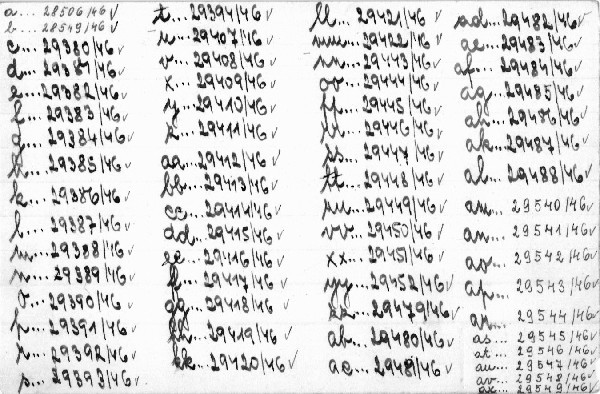 a... 28506/46 ✓
b... 28549/46 ✓
c... 29380/46 ✓
d... 29381/46 ✓
e... 29382/46 ✓
f... 29383/46 ✓
g... 29384/46 ✓
h... 29385/46 ✓
k... 29386/46 ✓
l... 29387/46 ✓
m... 29388/46 ✓
n... 29389/46 ✓
o... 29390/46 ✓
p... 29391/46 ✓
r... 29392/46 ✓
s... 29393/46 ✓
t... 29394/46 ✓
u... 29407/46 ✓
v... 29408/46 ✓
x... 29409/46 ✓
y... 29410/46 ✓
z... 29411/46 ✓
aa... 29412/46 ✓
bb... 29413/46 ✓
cc... 29414/46 ✓
dd... 29415/46 ✓
ee... 29416/46 ✓
ff... 29417/46 ✓
gg... 29418/46 ✓
hh... 29419/46 ✓
kk... 29420/46 ✓
ll... 29421/46 ✓
mm... 29422/46 ✓
nn... 29443/46 ✓
oo... 29444/46 ✓
pp... 29445/46 ✓
rr... 29446/46 ✓
ss... 29447/46 ✓
tt... 29448/46 ✓
uu... 29449/46 ✓
vv... 29450/46 ✓
xx... 29451/46 ✓
yy... 29452/46 ✓
zz... 29479/46 ✓
ab... 29480/46 ✓
ac... 29481/46 ✓
ad... 29482/46 ✓
ae... 29483/46 ✓
af... 29484/46 ✓
ag... 29485/46 ✓
ah... 29486/46 ✓
ak... 29487/46 ✓
al... 29488/46 ✓
am... 29540/46 ✓
an... 29541/46 ✓
ao... 29542/46 ✓
ap... 29543/46 ✓
ar... 29544/46 ✓
as... 29545/46 ✓
at... 29546/46 ✓
au... 29547/46 ✓
av... 29548/46 ✓
ax... 29549/46 ✓